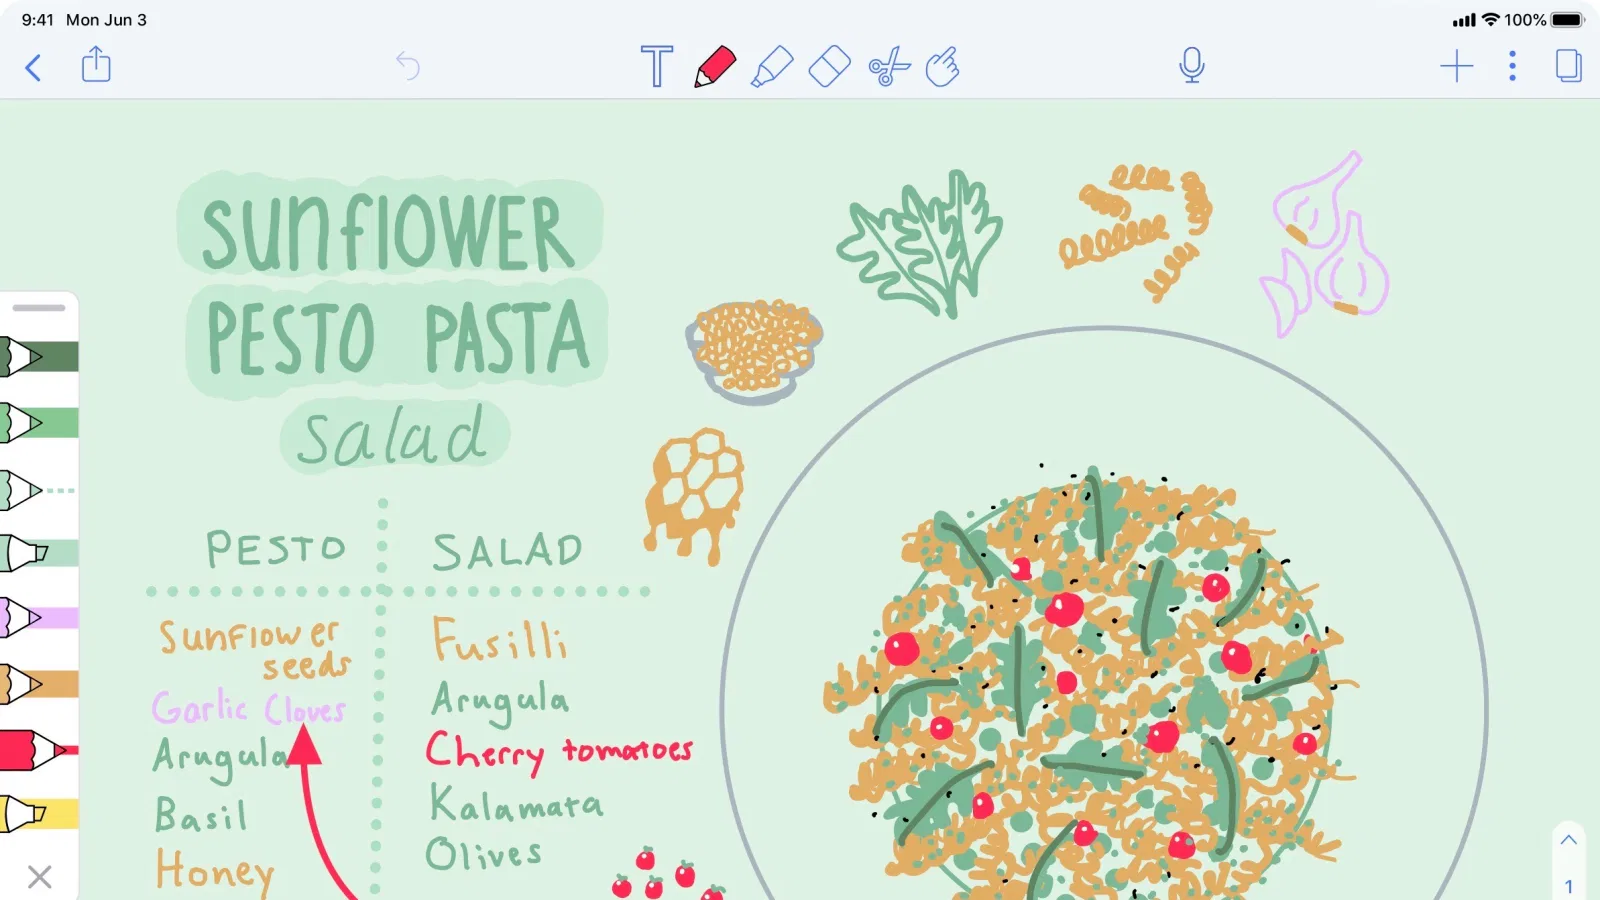 9:41 Mon Jun 3
100%
T
SUNFLOWER
PESTO PASTA
Salad
PESTO
SALAD
Sunflower
seeds
Garlic Cloves
Arugula
Basil
Honey
Fusilli
Arugula
Cherry tomatoes
Kalamata
Olives
1